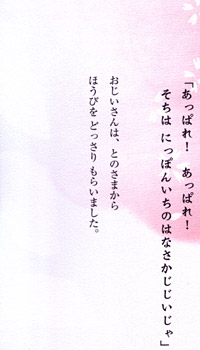 「あっぱれ！　あっぱれ！
そちは にっぽんいちのはなさかじじいじゃ」
おじいさんは、とのさまから
ほうびを どっさり もらいました。